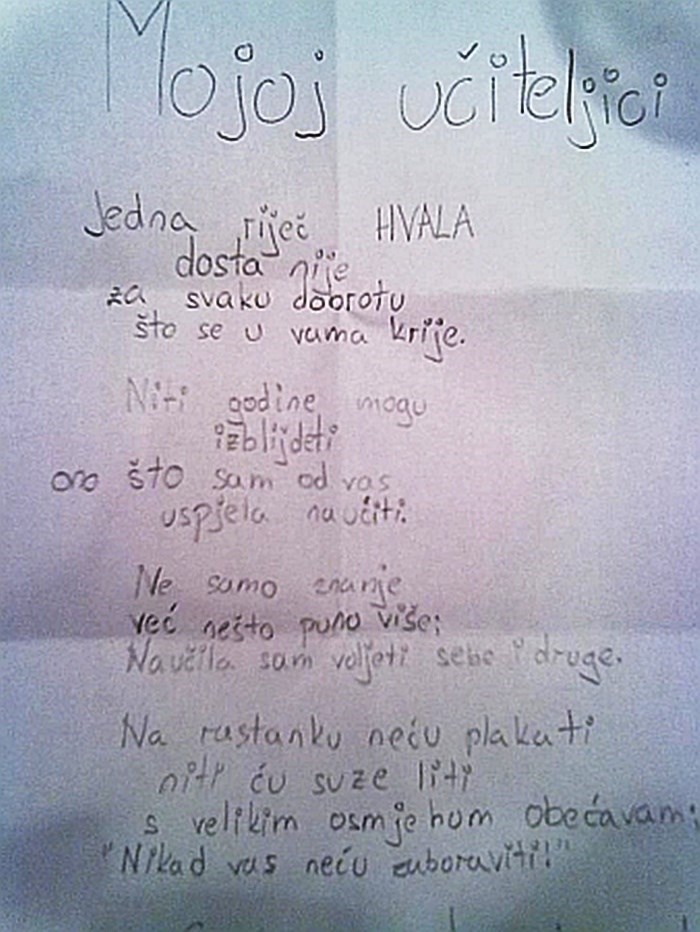 Mojoj učiteljici
Jedna riječ HVALA
dosta nije
za svaku dobrotu
što se u vama krije.
Niti godine mogu
izblijdeti
ono što sam od vas
uspjela naučiti.
Ne samo znanje
već nešto puno više:
Naučila sam voljeti sebe i druge.
Na rastanku neću plakati
niti ću suze liti
s velikim osmjehom obećavam:
"Nikad vas neću zaboraviti!"